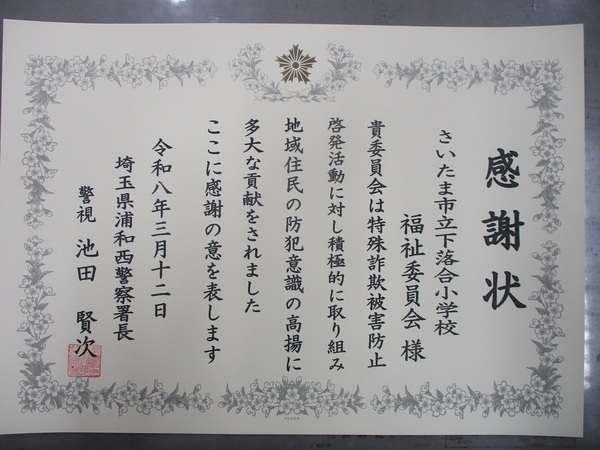 感謝状
さいたま市立下落合小学校
福祉委員会様
貴委員会は特殊詐欺被害防止
啓発活動に対し積極的に取り組み
地域住民の防犯意識の高揚に
多大な貢献をされました
ここに感謝の意を表します
令和八年三月十二日
埼玉県浦和西警察署長
警視 池田 賢次